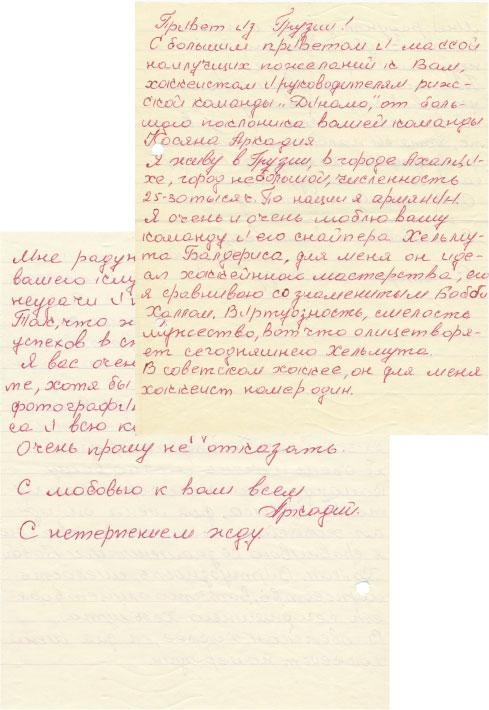 Привет из Грузии!
С большим приветом и массой
наилучших пожеланий к Вам,
хоккеистам и руководителям риж-
ской команды „Динамо," от боль-
шого поклоника вашей команды
Косяна Аркадия.
Я живу в Грузии, в городе Ахалци-
хе, город небольшой, численность
25-30 тысяч. По нации я армянин.
Я очень и очень люблю вашу
команду и его снайпера Хельму-
та Балдериса, для меня он иде-
ал хоккейнного мастерства, его
я сравниваю со знаменитым Бобби
Халлом. Виртуозность, смелость
мужество, вот что олицетворя-
ет сегодняшнего Хельмута.
В советском хоккее, он для меня
хоккеист номер один.
Мне радую
вашего
неудачи и
Так, что
успехов в
Я вас очен
те, хотя бы
фотографи
са и всю
Очень прошу не отказать.
С любовью к вам всем
Аркадий.
С нетерпением жду